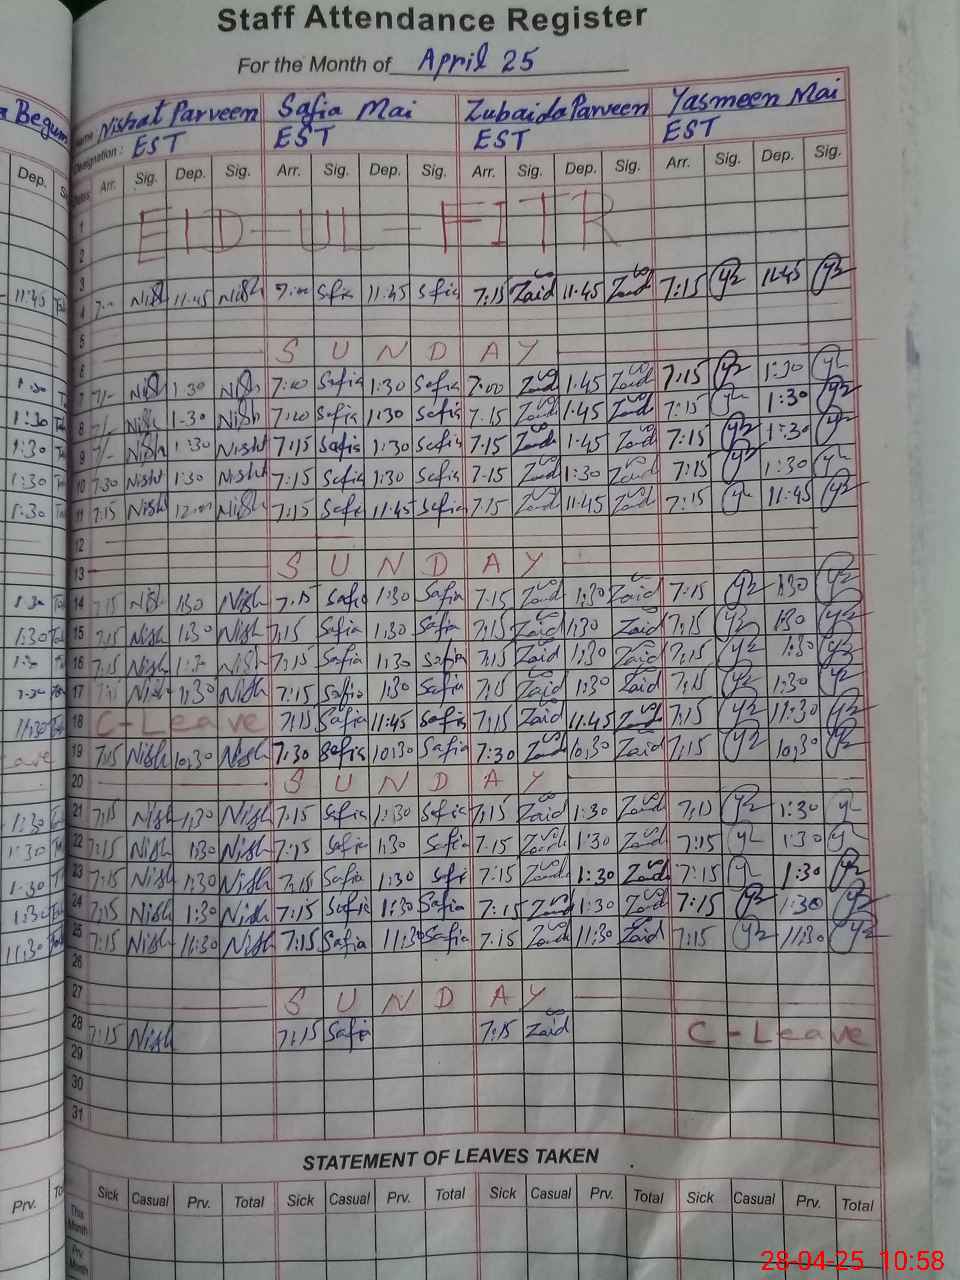 Staff Attendance Register
For the Month of April 25
Begum Name Nishat Parveen Safia Mai Zubaida Parveen Yasmeen Mai
Designation : EST EST EST EST
Dep. Dates Arr. Sig. Dep. Sig. Arr. Sig. Dep. Sig. Arr. Sig. Dep. Sig. Arr. Sig. Dep. Sig.
1 EID-UL-FITR
2
3
11:45 4 7:- Nish 11:45 Nish 7:00 Safia 11:45 Safia 7:15 Zaid 11:45 Zaid 7:15 11:45
5
6 SUNDAY
1:30 7 7/- Nish 1:30 Nish 7:00 Safia 1:30 Safia 7:00 Zaid 1:45 Zaid 7:15 1:30
1:30 8 7/- Nish 1:30 Nish 7:00 Safia 1:30 Safia 7:15 Zaid 1:45 Zaid 7:15 1:30
1:30 9 7/- Nish 1:30 Nisht 7:15 Safia 1:30 Safia 7:15 Zaid 1:45 Zaid 7:15 1:30
1:30 10 7:30 Nisht 1:30 Nisht 7:15 Safia 1:30 Safia 7:15 Zaid 1:30 Zaid 7:15 1:30
1:30 11 7:15 Nish 12:00 Nish 7:15 Safia 11:45 Safia 7:15 Zaid 11:45 Zaid 7:15 11:45
12
13 SUNDAY
1:30 14 7:15 Nish 1:30 Nish 7:15 Safia 1:30 Safia 7:15 Zaid 1:30 Zaid 7:15 1:30
1:30 15 7:15 Nish 1:30 Nish 7:15 Safia 1:30 Safia 7:15 Zaid 1:30 Zaid 7:15 1:30
1:30 16 7:15 Nish 1:30 Nish 7:15 Safia 1:30 Safia 7:15 Zaid 1:30 Zaid 7:15 1:30
17 7:15 Nish 1:30 Nish 7:15 Safia 1:30 Safia 7:15 Zaid 1:30 Zaid 7:15 1:30
11:30 18 C-Leave 7:15 Safia 11:45 Safia 7:15 Zaid 11:45 Zaid 7:15 11:30
19 7:15 Nish 10:30 Nish 7:30 Safia 10:30 Safia 7:30 Zaid 10:30 Zaid 7:15 10:30
20 SUNDAY
1:30 21 7:15 Nish 1:30 Nish 7:15 Safia 1:30 Safia 7:15 Zaid 1:30 Zaid 7:15 1:30
1:30 22 7:15 Nish 1:30 Nish 7:15 Safia 1:30 Safia 7:15 Zaid 1:30 Zaid 7:15 1:30
1:30 23 7:15 Nish 1:30 Nish 7:15 Safia 1:30 Safi 7:15 Zaid 1:30 Zaid 7:15 1:30
1:30 24 7:15 Nish 1:30 Nish 7:15 Safia 1:30 Safia 7:15 Zaid 1:30 Zaid 7:15 1:30
11:30 25 7:15 Nish 11:30 Nish 7:15 Safia 11:30 Safia 7:15 Zaid 11:30 Zaid 7:15 11:30
26
27 SUNDAY
28 7:15 Nish 7:15 Safia 7:15 Zaid C-Leave
29
30
31
STATEMENT OF LEAVES TAKEN
Prv. Sick Casual Prv. Total Sick Casual Prv. Total Sick Casual Prv. Total Sick Casual Prv. Total
This Month
Prv. Month
28-04-25 10:58